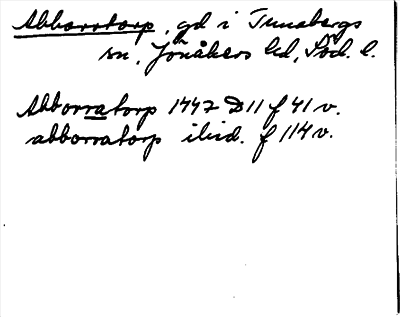 Abborrtorp, gd i Tunabergs
sn, Jönåkers hd, Söd. l.
Abborratorp 1447 D 11 f 41 v.
abborratorp ibid. f 114 v.